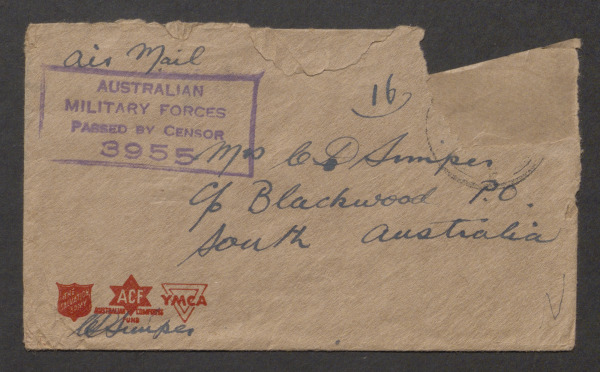 Air Mail
AUSTRALIAN
MILITARY FORCES
PASSED BY CENSOR
3955
16
Mrs C D Simper
C/o Blackwood P.O.
South Australia
THE SALVATION ARMY
ACF
AUSTRALIAN COMFORTS
FUND
YMCA
CDSimper